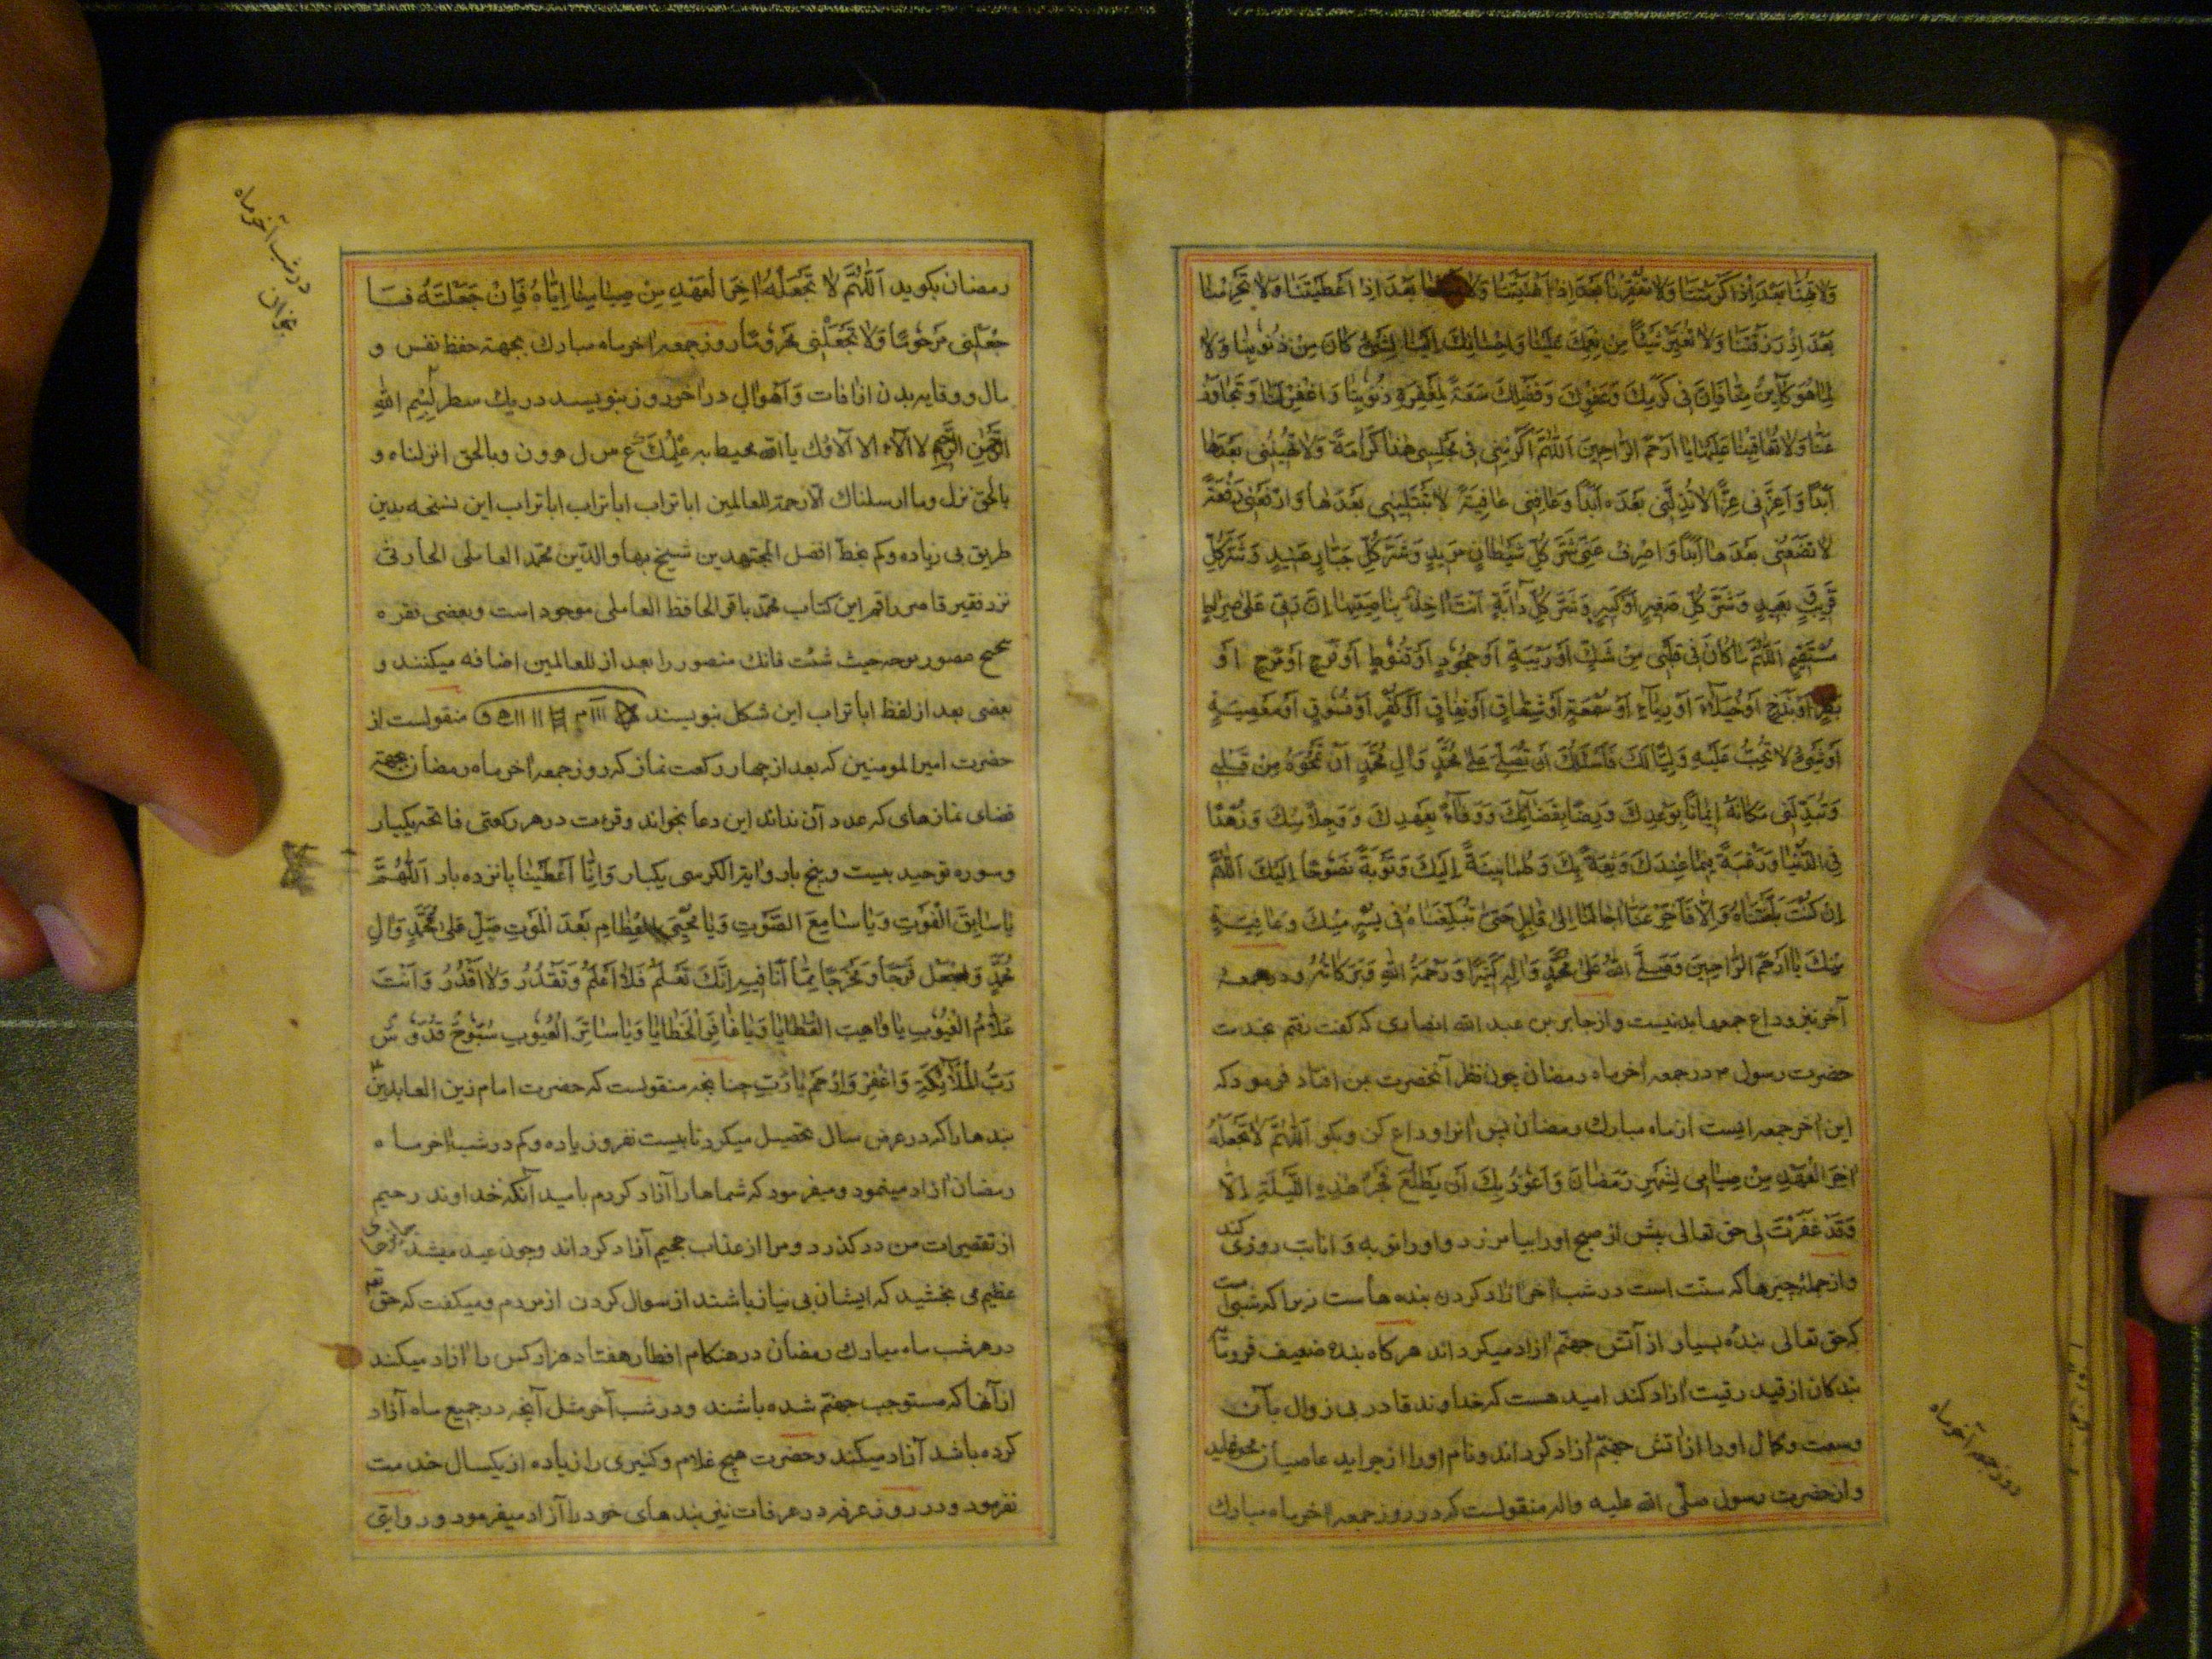 ولا تهنا بعد اذ اكرمتنا ولا تفقرنا بعد اذ اغنيتنا ولا بعد اذ اعطيتنا ولا تحرمنا
بعد اذ رزقتنا ولا تغير شيئا من نعمك علينا واحسانك الينا لشئ كان من ذنوبنا ولا
لما هو كائن منا فان في كرمك وعفوك وفضلك سعة لمغفرة ذنوبنا واغفر لنا وتجاوز
عنا ولا تعاقبنا عليها يا ارحم الراحمين اللهم اكرمني في مجلسي هذا كرامة ولا تهينني بعدها
ابدا واعزني عزا لا تذلني بعده ابدا وعافني عافية لا تبتليني بعدها وارفعني رفعة
لا تضعني بعدها ابدا واصرف عني شر كل شيطان مريد وشر كل جبار عنيد وشر كل
قريب بعيد وشر كل صغير او كبير وشر كل دابة انت اخذ بناصيتها ان ربي على صراط
مستقيم اللهم ما كان في قلبي من شك او ريبة او جحود او قنوط او فرح او مرح او
بطر او بذخ او خيلاء او رياء او سمعة او شقاق او نفاق او كفر او فسوق او معصية
او شئ لا تحب عليه وليا لك فاسئلك ان تصلي على محمد وال محمد ان تمحوه من قلبي
وتبدلني مكانه ايمانا بوعدك ورضا بقضائك ووفاء بعهدك ووجلا منك وزهدا
في الدنيا ورغبة فيما عندك وثقة بك وطمانينة اليك وتوبة نصوحا اليك اللهم
ان كنت بلغتناه والا فاخر عنا اجالنا الى قابل حتى تبلغناه في يسر منك وعافية
منك يا ارحم الراحمين وصلى الله على محمد واله كثيرا ورحمة الله وبركاته ودر جمعه
آخر نيز وداع جمعها بد نيست واز جابر بن عبد الله انصارى كه گفت رفتم بخدمت
حضرت رسول در جمعه اخر ماه رمضان چون نظر آنحضرت بمن افتاد فرمود كه
اين اخر جمعه ايست از ماه مبارك رمضان پس انرا وداع كن وبكو اللهم لا تجعله
اخر العهد من صيامي لشهر رمضان واعوذ بك ان يطلع فجر هذه الليلة الا
وقد غفرت لي حق تعالى پيش از صبح اورا بيامرزد واورا توبه وانابت روزى كند
واز جمله چيزها كه سنت است در شب اخر ازاد كردن بنده هاست زيرا كه شبى است
كه حق تعالى بنده بسيار از آتش جهنم ازاد ميكرداند هركاه بنده ضعيف
بندكان از قيد رقيت ازاد كند اميد هست كه خداوند قادر بى زوال بآن
وسعت وكمال اورا از اتش جهنم ازاد كرداند ونام اورا از جرايد عاصيان محو نمايد
واز حضرت رسول صلى الله عليه واله منقولست كه در روز جمعه اخر ماه مبارك
روز جمعه آخر ماه
رمضان بكويد اللهم لا تجعله اخر العهد من صيامنا اياه فان جعلته فا
جعلني مرحوما ولا تجعلني محروما روز جمعه اخر ماه مبارك بجهة حفظ نفس و
مال ووقايه بدن از افات واهوال در اخر روز بنويسد در يك سطر بسم الله
الرحمن الرحيم لا الاء الا الاؤك يا الله محيط به علمك ع س ل هوون وبالحق انزلناه و
بالحق نزل وما ارسلناك الا رحمة للعالمين ابا تراب ابا تراب ابا تراب اين نسخه بدين
طريق بى زياده وكم بخط افضل المجتهدين شيخ بهاء والدين محمد العاملى الحارثى
نزد فقير قاصر راقم اين كتاب محمد باقر الحافظ العاملى موجود است وبعضى فقره
صحيح منصور حيث شئت فانك منصور را بعد از للعالمين اضافه ميكنند و
بعضى بعد از لفظ ابا تراب اين شكل بنويسند منقولست از
حضرت امير المومنين كه بعد از چهار ركعت نماز كه روز جمعه اخر ماه رمضان بجهة
قضاى نمازهاى كه عدد آن نداند اين دعا بخواند وقرءت در هر ركعتى فاتحه يكبار
وسوره توحيد بيست وپنج بار واية الكرسى يكبار وانا اعطينا پانزده بار اللهم
يا سابق الفوت ويا سامع الصوت ويا محيي العظام بعد الموت صل على محمد وال
محمد واجعل فرجا ومخرجا مما انا فيه انك تعلم فلا اعلم وتقدر ولا اقدر وانت
علام الغيوب يا واهب العطايا ويا غافر الخطايا ويا ساتر العيوب سبوح قدوس
رب الملائكة واغفر وارحم يا رب چنانچه منقولست كه حضرت امام زين العابدين
بندها را كه در عرض سال تحصيل ميكرد تا بيست نفر وزياده وكم در شب اخر ماه
رمضان ازاد مينمود وميفرمود كه شماها را آزاد كردم باميد آنكه خداوند رحيم
از تقصيرات من در كذرد ومرا از عذاب جحيم آزاد كرداند وچون عيد ميشد
عظيم مى بخشيد كه ايشان بى نياز باشند از سوال كردن از مردم وميكفت كه حق
در هر شب ماه مبارك رمضان در هنكام افطار هفتاد هزار كس را ازاد ميكند
از آنها كه مستوجب جهنم شده باشند ودر شب آخر مثل آنچه در جميع ماه آزاد
كرده باشد آزاد ميكند وحضرت هيچ غلام وكنيزى را زياده از يكسال خدمت
نفرمود ودر روز عرفه در عرفات نيز بندهاى خود را آزاد ميفرمود ور وايتى
در شب آخر ماه
بخوان